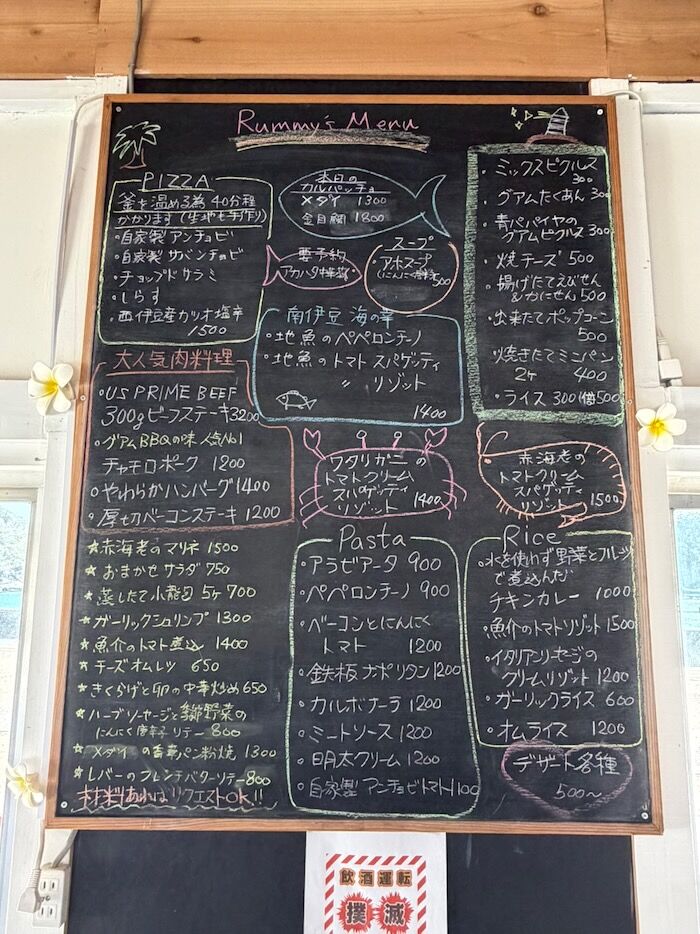 Rummy's Menu
PIZZA
釜を温める為40分程
かかります(生地も手作り)
・自家製アンチョビ
・自家製サバンチョビ
・チョップドサラミ
・しらす
・西伊豆産カツオ塩辛
1500
本日の
カルパッチョ
メダイ 1300
金目鯛 1800
要予約
アカハタ
スープ
アホスープ
(にんにく
500
南伊豆 海の幸
・地魚のペペロンチーノ
・地魚のトマトスパゲッティ
〃 リゾット
1400
・ミックスピクルス
300
・グアムたくあん 300
・青パパイヤの
グアムピクルス 300
・焼チーズ 500
・揚げたてえびせん
&かにせん 500
・出来たてポップコーン
500
・焼きたてミニパン
2ケ 400
・ライス 300 倍500
大人気肉料理
・US PRIME BEEF
300gビーフステーキ3200
・グアムBBQの味 人気No1
チャモロポーク 1200
・やわらかハンバーグ1400
・厚切ベーコンステーキ 1200
ワタリガニの
トマトクリーム
スパゲッティ
リゾット 1400
赤海老の
トマトクリーム
スパゲッティ
リゾット 1500
★赤海老のマリネ 1500
★おまかせサラダ 750
★蒸したて小龍包 5ヶ 700
★ガーリックシュリンプ 1300
★魚介のトマト煮込 1400
★チーズオムレツ 650
★きくらげと卵の中華炒め650
★ハーブソーセージと野菜の
にんにく唐辛子ソテー 800
★メダイの香草パン粉焼 1300
★レバーのフレンチバターソテー800
材料あればリクエストOK!!
Pasta
・アラビアータ 900
・ペペロンチーノ 900
・ベーコンとにんにく
トマト 1200
・鉄板ナポリタン1200
・カルボナーラ 1200
・ミートソース 1200
・明太クリーム 1200
・自家製アンチョビトマト1100
Rice
・水を使わず野菜とフルーツ
で煮込んだ
チキンカレー 1000
・魚介のトマトリゾット1500
・イタリアンソーセージの
クリームリゾット 1200
・ガーリックライス 600
・オムライス 1200
デザート各種
500～
飲酒運転
撲滅